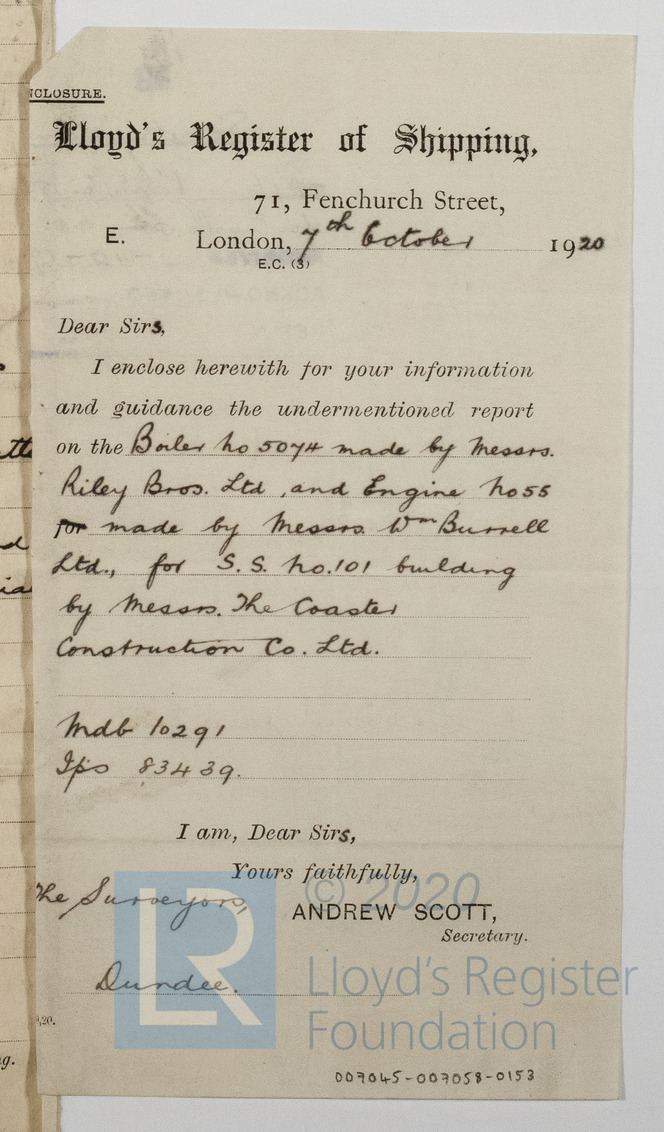 NCLOSURE.
Lloyd's Register of Shipping,
71, Fenchurch Street,
E. London, 7th October 1920
E.C. (3)
Dear Sirs,
I enclose herewith for your information
and guidance the undermentioned report
on the Boiler No 5074 made by Messrs.
Riley Bros. Ltd, and Engine No 55
for made by Messrs. Wm Burrell
Ltd., for S.S. No. 101 building
by Messrs. The Coaster
Construction Co. Ltd.
Mdb 10291
Ips 83439.
I am, Dear Sirs,
Yours faithfully,
The Surveyors,
ANDREW SCOTT,
Secretary.
Dundee.
© 2020
LR
Lloyd's Register
Foundation
,20.
g.
007045-007058-0153